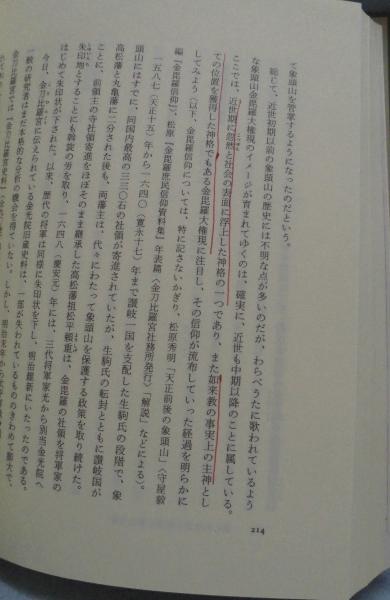 て象頭山を管掌するようになったのだという。
総じて、近世初期以前の象頭山の歴史には不明な点が多いのだが、わらべうたに歌われているよう
な象頭山金毘羅大権現のイメージが育まれてゆくのは、確実に、近世も中期以降のことに属している。
ここでは、近世期に忽然と社会の表面に浮上した神格の一つであり、また如来教の事実上の主神とし
ての位置を獲得した神格でもある金毘羅大権現に注目し、その信仰が流布していった経過を明らかに
してみよう（以下、金毘羅信仰については、特に記さないかぎり、松原秀明「天正前後の象頭山」〈守屋毅
編『金毘羅信仰』〉、松原『金毘羅庶民信仰資料集』年表篇〈金刀比羅宮社務所発行〉「解説」などによる）。
一五八七（天正十五）年から一六四〇（寛永十七）年まで讃岐一国を支配した生駒氏の段階で、象
頭山にはすでに、同国内最高の三三〇石の社領が寄進されていたが、生駒氏の転封とともに讃岐国が
高松藩と丸亀藩に二分された後も、両藩主は、代々にわたって象頭山を保護する政策を取り続けた。
ことに、前領主の寺社領寄進をほぼそのまま継承した高松藩祖松平頼重は、金毘羅の社領を将軍家の
朱印地とすることにも斡旋の労を取り、一六四八（慶安元）年には、三代将軍家光から別当金光院へ
はじめて朱印状が下された。以来、歴代の将軍は同様に朱印状を下し、明治維新にいたったのである。
今日、金刀比羅宮に伝えられている金光院旧蔵史料は、一部が失われているもののきわめて膨大で、
一般の研究者はまだ本格的な分析の機会を得ていない。しかし、明治末年から
214